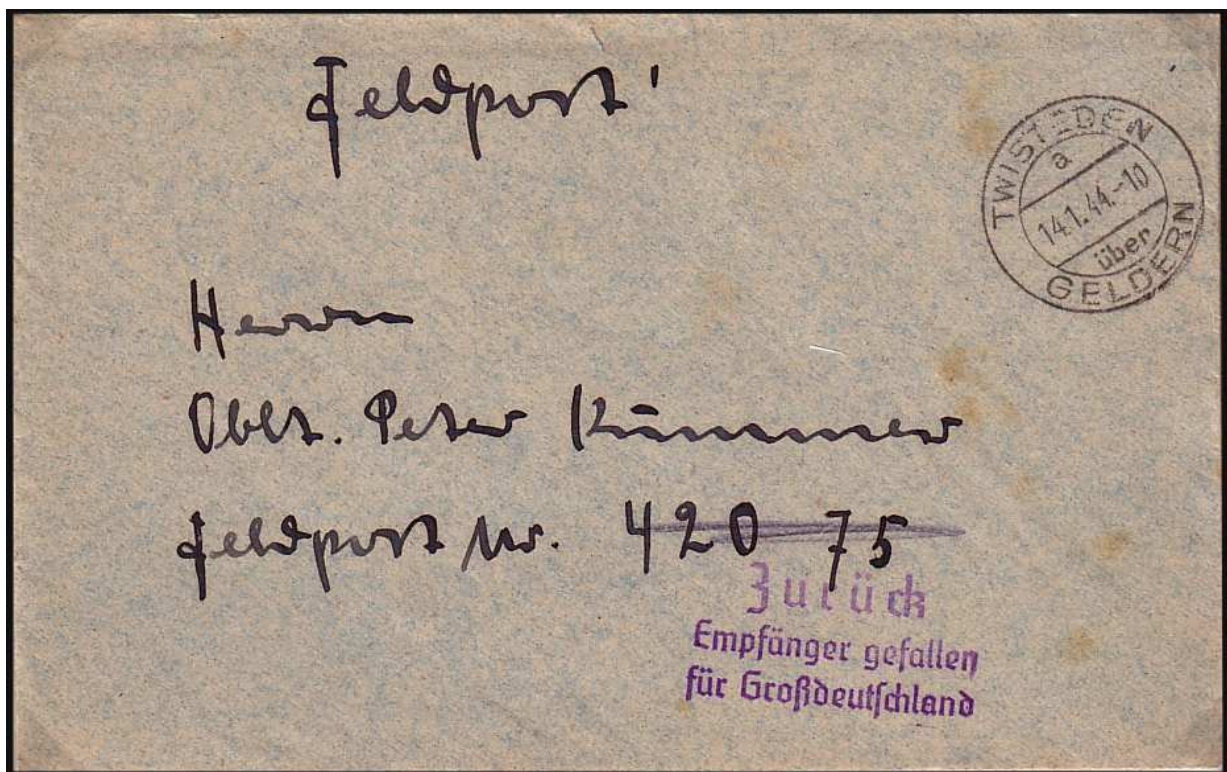 Feldpost!
TWISTEDEN
a
14.1.44.-10
über
GELDERN
Herrn
Oblt. Peter Kümmer
Feldpost Nr. 420 75
Zurück
Empfänger gefallen
für Großdeutschland